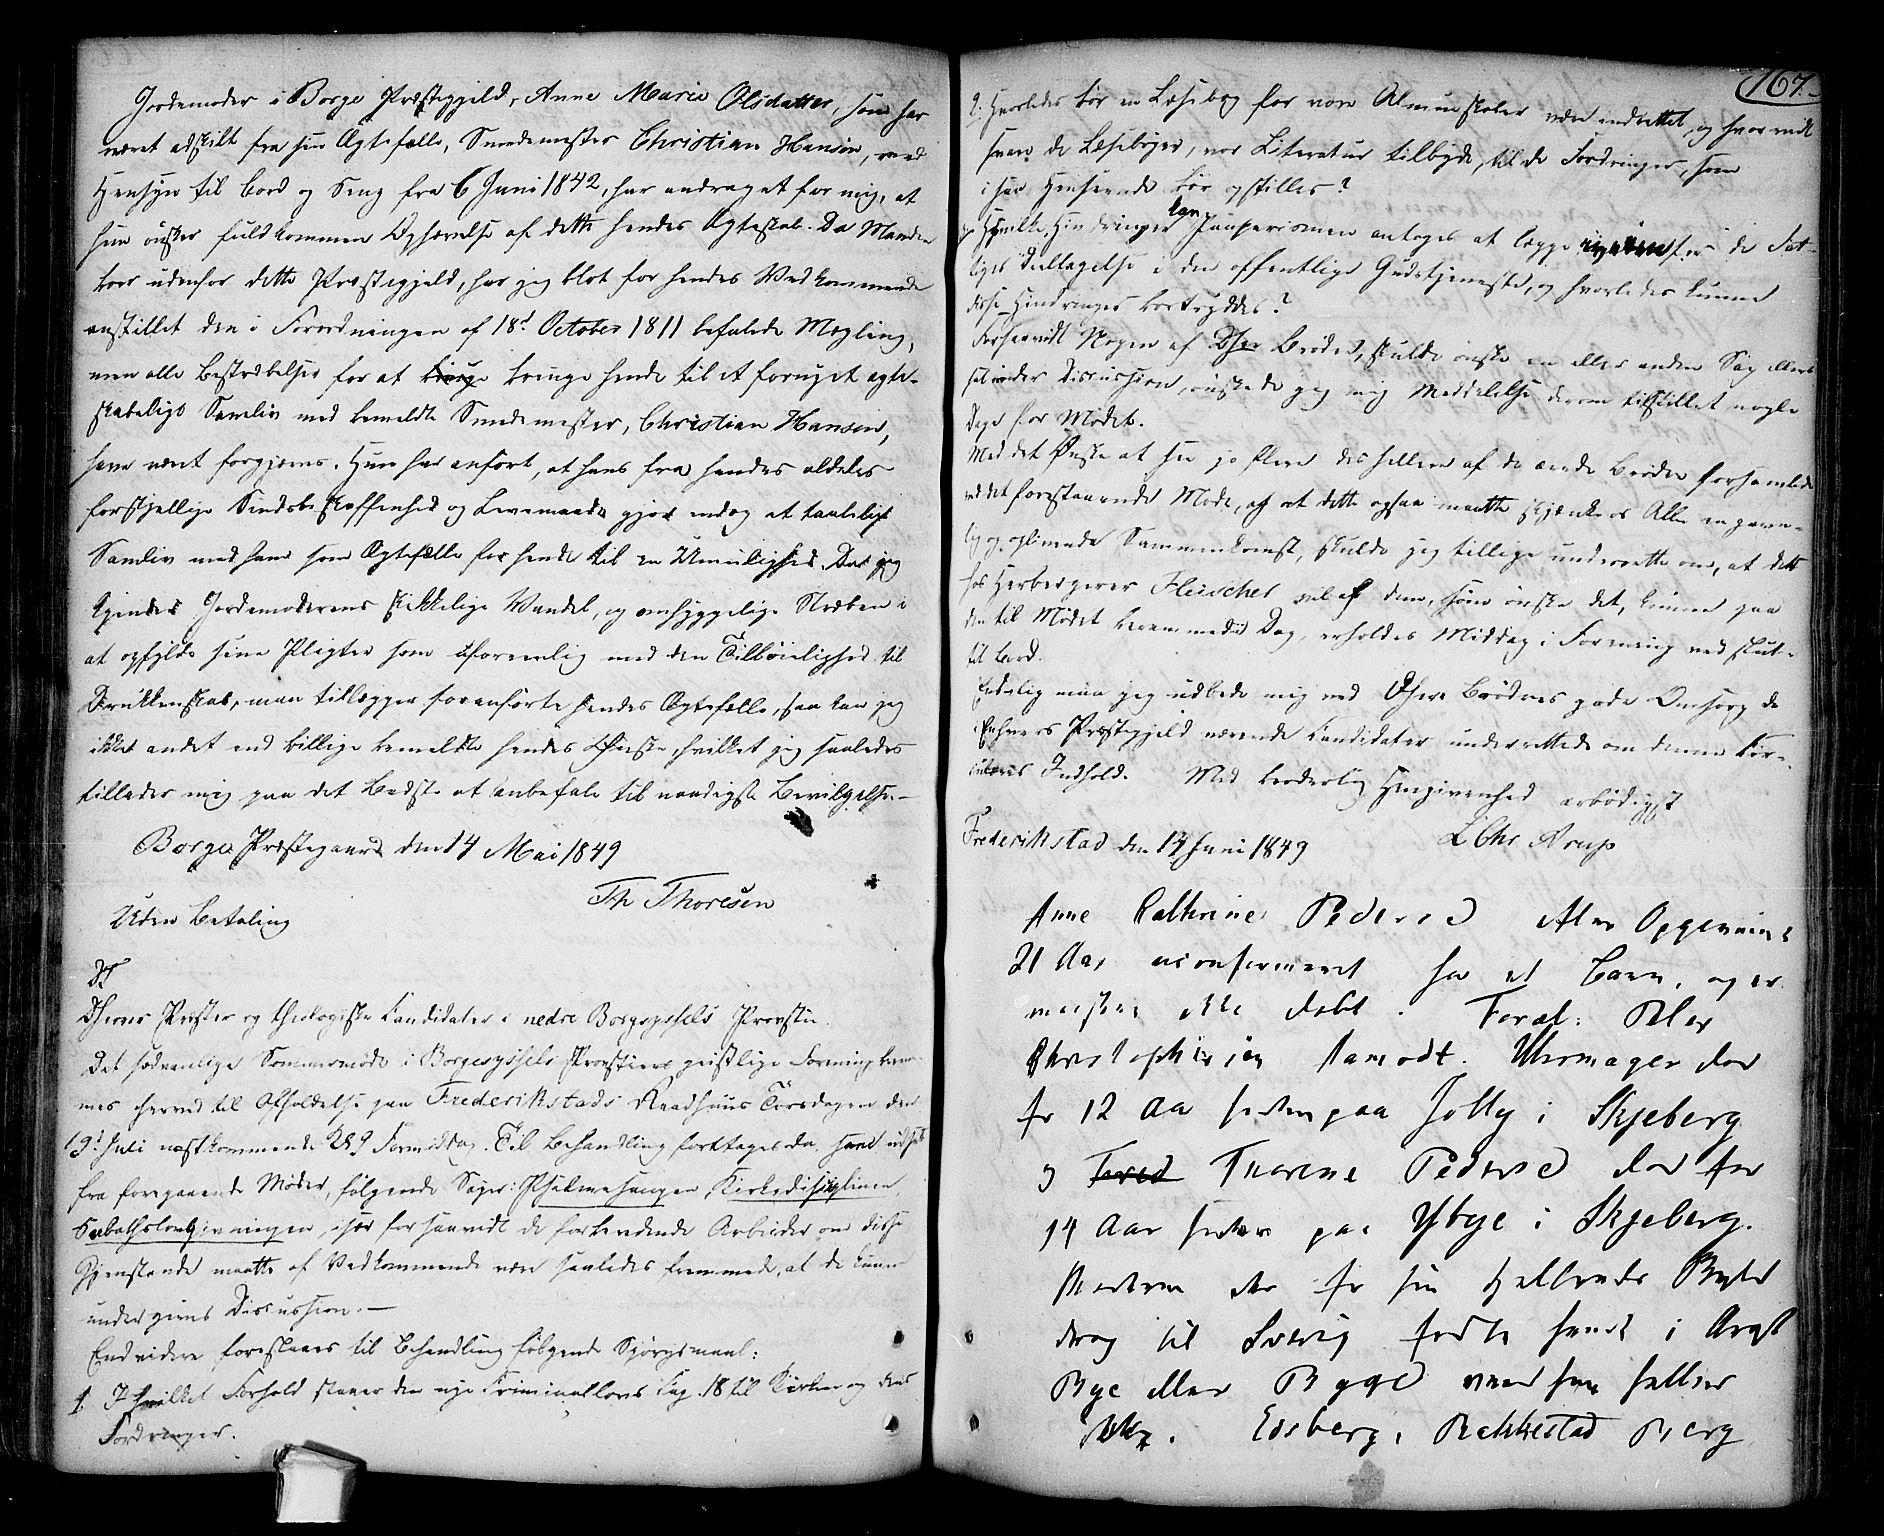 Jordemoder i Borge Præstegjeld, Anne Marie Olsdatter, som har
været adskilt fra sin Ægtefælle, Smedemester Christian Hansen, med
Hensyn til Bord og Seng fra 6 Juni 1842, har andraget for mig, at
hun ønsker fuldkommen Ophævelse af dette hendes Ægteskab. Da Manden
boer udenfor dette Præstegjeld, har jeg blot for hendes Vedkommende
anstillet den i Forordningen af 18d October 1811 befalede Mægling,
men alle Bestræbelser for at bringe bringe hende til et fornyet ægte-
skabeligt Samliv med bemeldte Smedemester, Christian Hansen,
have været forgjæves. Hun har anført, at hans fra hendes aldeles
forskjellige Sindsbeskaffenhed og Levemaade gjør endog et taaleligt
Samliv med ham som Ægtefælle for hende til en Umulighed. Da jeg
kjender Jordemoderens skikkelige Vandel, og omhyggelige Stræben i
at opfylde sine Pligter som uforeenlig med den Tilbøielighed til
Drukkenskab, man tillægger foranførte hendes Ægtefælle, saa kan jeg
ikke andet end billige bemeldte hendes Ønske, hvilket jeg saaledes
tillader mig paa det Bedste at anbefale til naadigste Bevilgelse.-
Borge Præstegaard den 14 Mai 1849
Th Thoresen
Uden Betaling
Dhrrer Præster og theologiske Candidater i nedre Borgesyssels Provstie.
Det sædvanlige Sommermøde i Borgesyssels Provstiers geistlige Forening kom-
mes herved til Afholdelse paa Frederikstads Raadhuus Torsdagen den
19d Juli næstkommende Kl 9 Formiddag. Til Behandling foretages da, som udsat
fra foregaaende Møder, følgende Sager: Psalmesangen, Kirkedisciplinen,
Sabathslovgivningen, især forsaavidt de forberedende Arbeider om disse
Gjenstande maatte af Vedkommende være saaledes fremmede, at de kunne
undergives Discussion.-
Endvidere foreslaaes til Behandling følgende Spørgsmaal:
1. I hvilket Forhold staaer den nye Criminallovs Cap. 18 til Kirken og dens
Fordringer.
167.
2. Hvorledes bør en Læsebog for vore Almueskoler være indrettet, og hvorvidt
svare de Læsebøger, vor Literatur tilbyde, til de Fordringer, som
i saa Henseende bør opstilles?
3. Hvilke Hindringer kan Pauperismen antages at lægge iveien for de Fat-
tiges Deeltagelse i den offentlige Gudstjeneste, og hvorledes kunne
disse Hindringer bortryddes?
Forsaavidt Nogen af Dhrr Brødre, skulde ønske en eller anden Sag ellers
sat under Discussion, ønskede jeg mig Meddelelse derom tilstillet nogle
Dage før Mødet.
Med det Ønske at see jo flere des hellere af de ærede Brødre forsamlede
ved det forestaaende Møde, og at dette ogsaa maatte skjænke os Alle en gavn-
lig og oplivende Sammenkomst, skulde jeg tillige underrette om, at dette
hos Herbergerer Fleischer vil af dem, som ønske det, kunne paa
den til Mødet berammede Dag, erholdes Middag i Forening ved slut-
tet Bord.
Endelig maa jeg udbede mig ved Dhrrs Brødres gode Omsorg de
i Enhvers Præstegjeld værende Candidater underrettede om denne Cir-
culæres Indhold. Med broderlig Hengivenhed ærbødigst
Frederikstad den 14 Juni 1849 L Chr Arup
Anne Kathrine Pedersd Alm Opgivende
21 Aar uconfirmeret har et Barn, og er
maaskee ikke døbt. Foræl: Peter
Christophersen Aamodt. Uhrmager død
for 12 Aar siden paa Jelly i Skjeberg
og Fred Thorene Pedersd død for
14 Aar siden paa Ysbye i Skjeberg.
til Sverig fødte hende i
Bye eller Bygd
Eidsberg, Rakkestad Berg